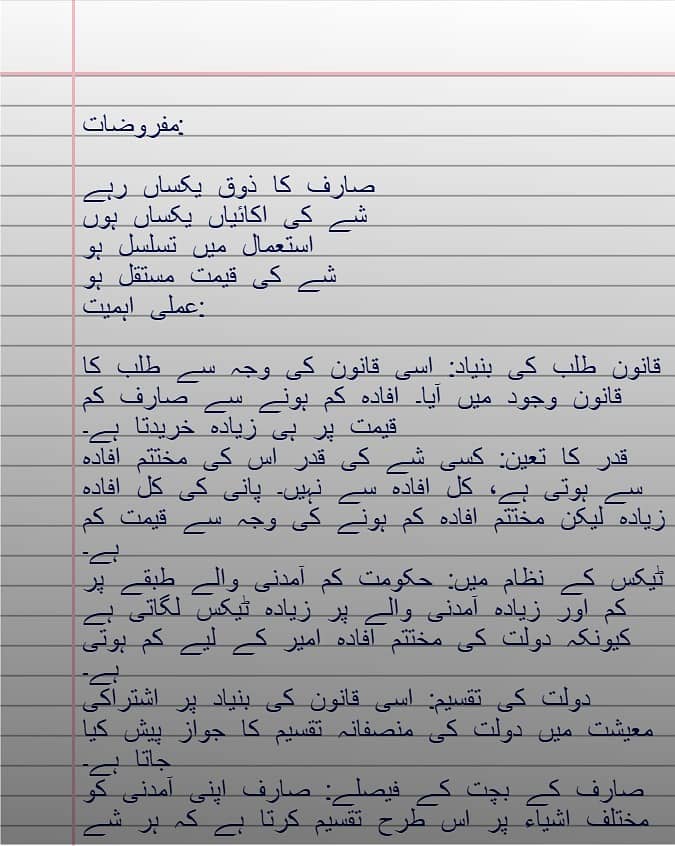 مفروضات:
صارف کا ذوق یکساں رہے
شے کی اکائیاں یکساں ہوں
استعمال میں تسلسل ہو
شے کی قیمت مستقل ہو
عملی اہمیت:
قانون طلب کی بنیاد: اسی قانون کی وجہ سے طلب کا
قانون وجود میں آیا۔ افادہ کم ہونے سے صارف کم
قیمت پر ہی زیادہ خریدتا ہے۔
قدر کا تعین: کسی شے کی قدر اس کی مختتم افادہ
سے ہوتی ہے، کل افادہ سے نہیں۔ پانی کی کل افادہ
زیادہ لیکن مختتم افادہ کم ہونے کی وجہ سے قیمت کم
ہے۔
ٹیکس کے نظام میں: حکومت کم آمدنی والے طبقے پر
کم اور زیادہ آمدنی والے پر زیادہ ٹیکس لگاتی ہے
کیونکہ دولت کی مختتم افادہ امیر کے لیے کم ہوتی
ہے۔
دولت کی تقسیم: اسی قانون کی بنیاد پر اشتراکی
معیشت میں دولت کی منصفانہ تقسیم کا جواز پیش کیا
جاتا ہے۔
صارف کے بچت کے فیصلے: صارف اپنی آمدنی کو
مختلف اشیاء پر اس طرح تقسیم کرتا ہے کہ ہر شے